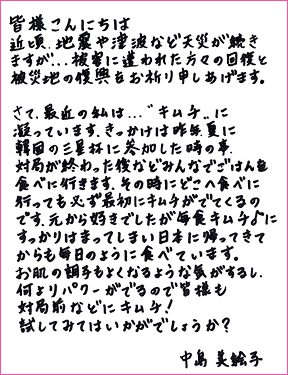 皆様こんにちは
近頃、地震や津波など天災が続き
ますが...被害に遭われた方々の回復と
被災地の復興をお祈り申しあげます。
さて、最近の私は...〝キムチ〟に
凝っています。きっかけは昨年夏に
韓国の三星杯に参加した時の事、
対局が終わった後などみんなでごはんを
食べに行きます。その時にどこへ食べに
行っても必ず最初にキムチがでてくるの
です。元から好きでしたが毎食キムチ♪に
すっかりはまってしまい日本に帰ってきて
からも毎日のように食べています。
お肌の調子もよくなるような気がするし、
何よりパワーがでるので皆様も
対局前などにキムチ!
試してみてはいかがでしょうか?
中島 美絵子